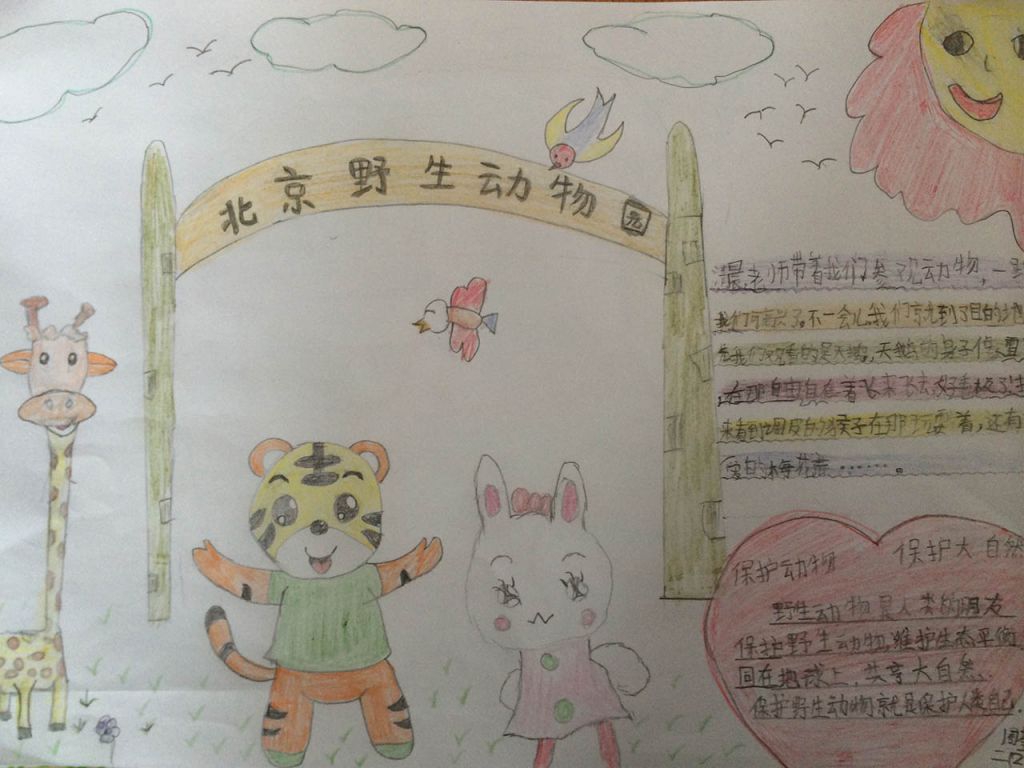 北京野生动物园
老师带着我们参观动物,一
我们 了。不一会儿,我们就到了目的地
我们 看的是天鹅,天鹅的身子
在那自由自在着飞来飞去,好看极了
来看到 皮的猴子在那 耍着,还有
的梅花鹿……。
保护动物 保护大自然
野生动物是人类的朋友
保护野生动物,维护生态平衡
同在地球上,共享大自然.
保护野生动物就是保护人类自己.